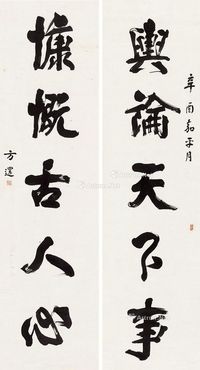 辛酉嘉平月
與論天下事
慷慨古人心
方還